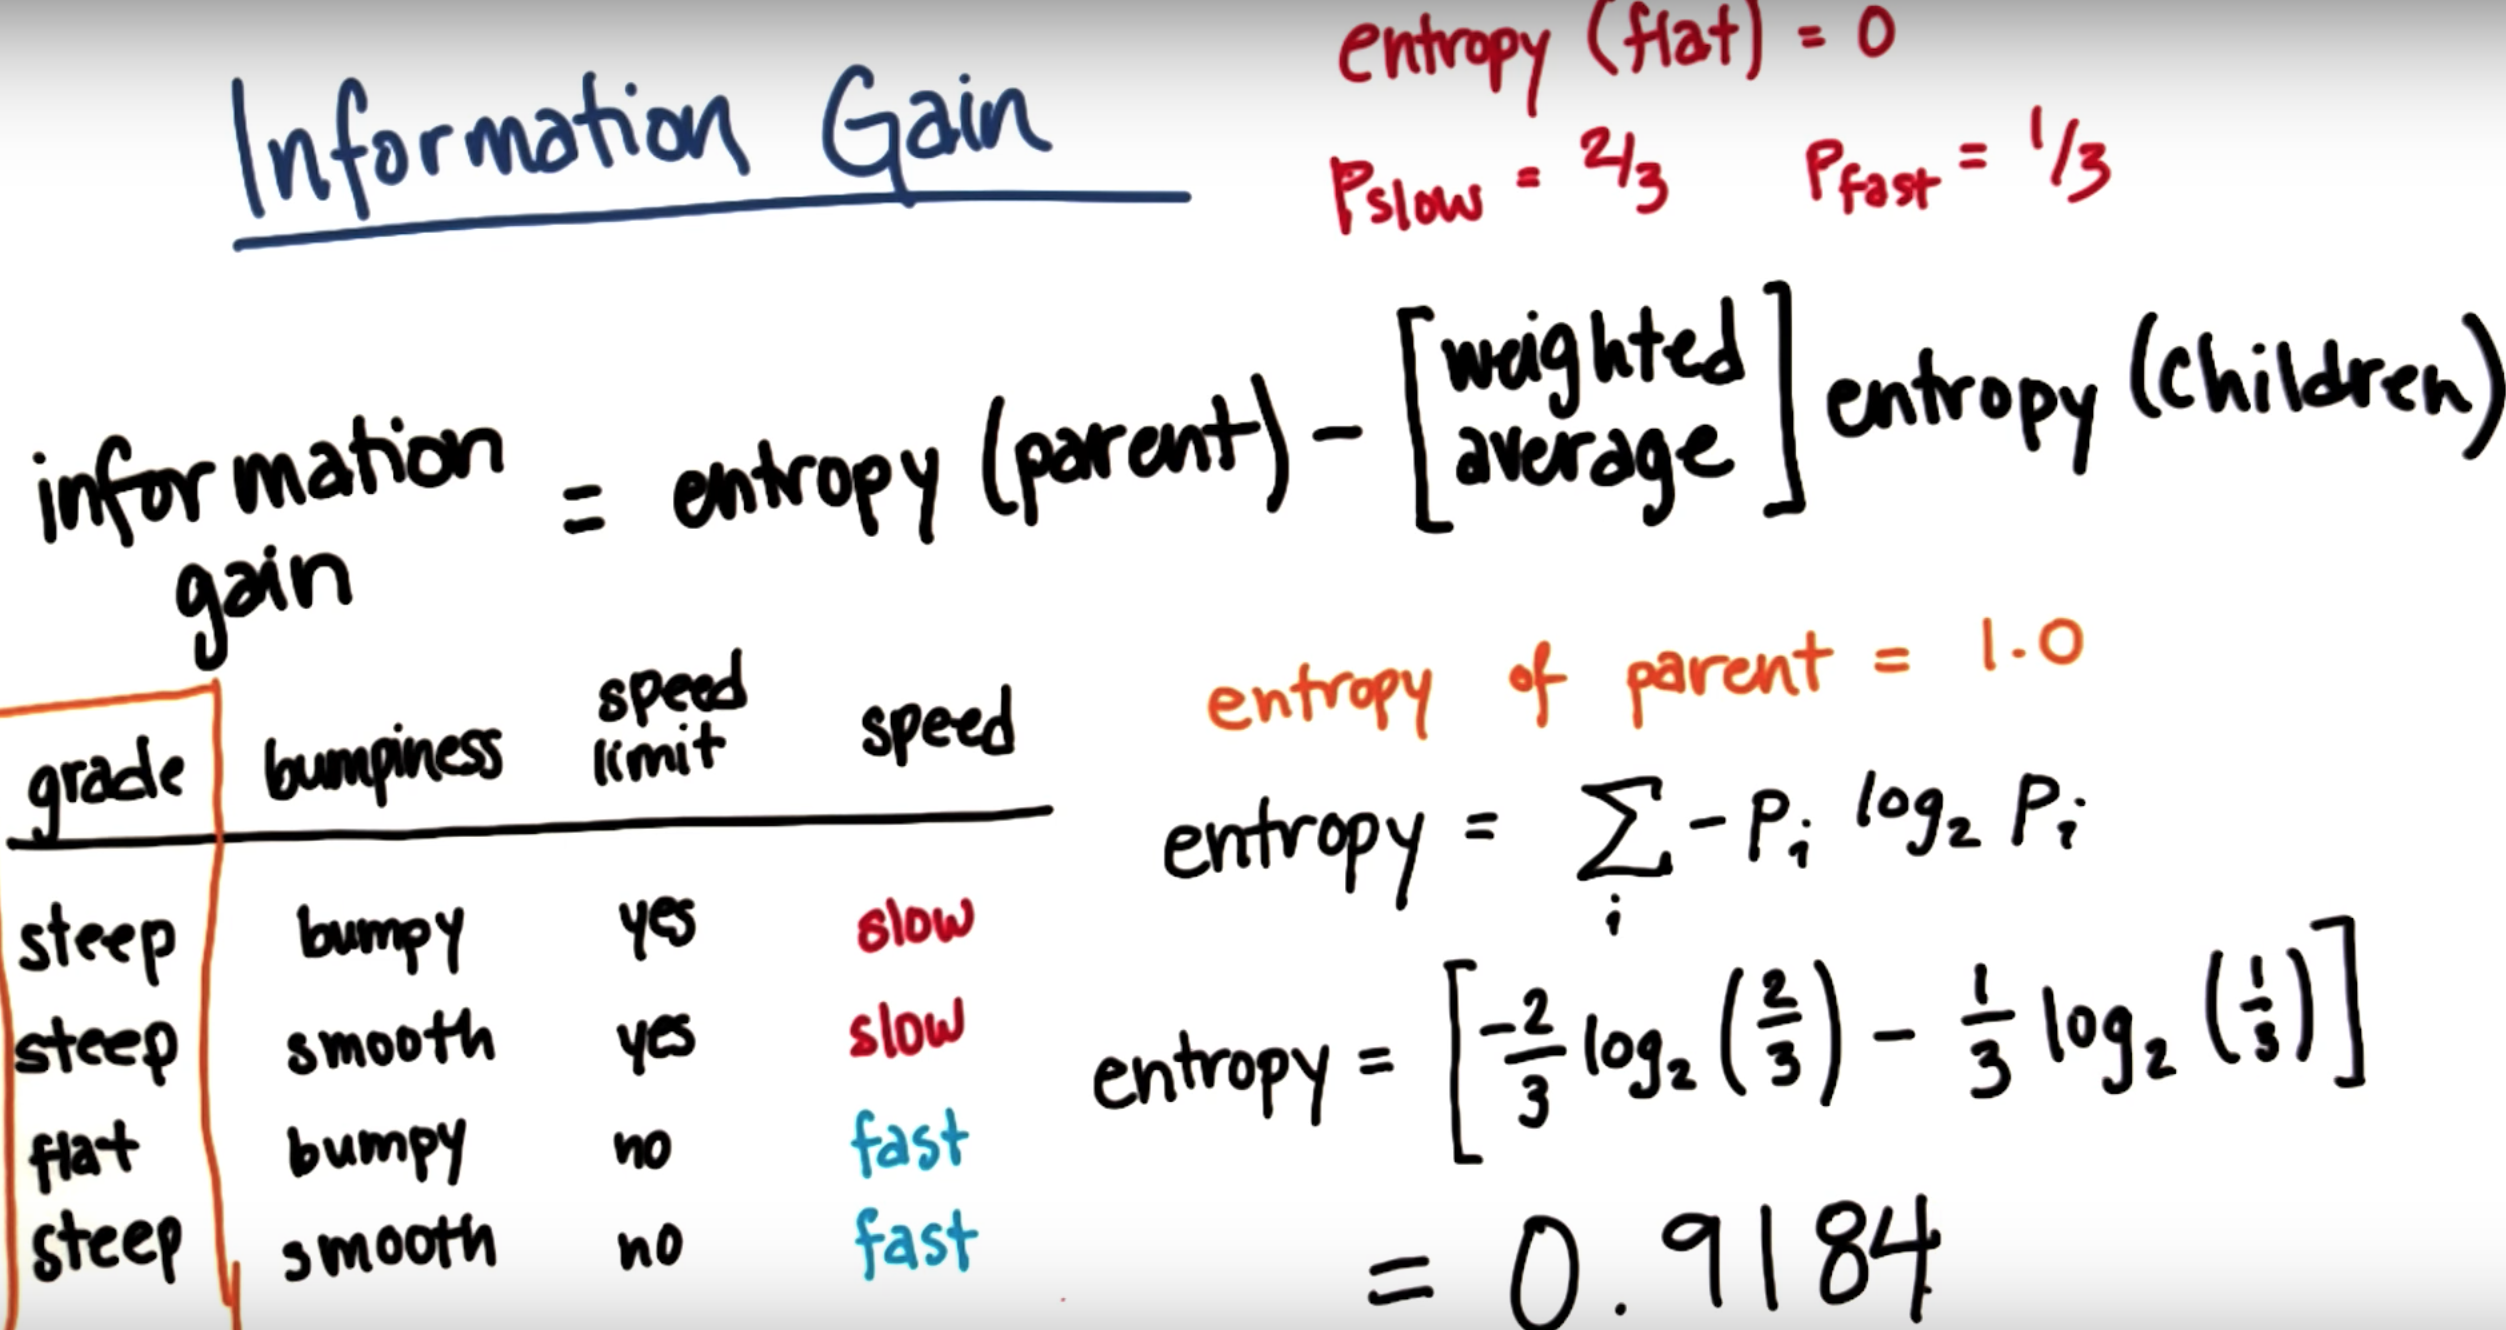 Information Gain
entropy (flat) = 0
Pslow = 2/3 Pfast = 1/3
information gain = entropy (parent) - [weighted average] entropy (children)
entropy of parent = 1.0
grade bumpiness speed limit speed
steep bumpy yes slow
steep smooth yes slow
flat bumpy no fast
steep smooth no fast
entropy = ∑i - Pi log₂ Pi
entropy = [-2/3 log₂ (2/3) - 1/3 log₂ (1/3)]
= 0.9184